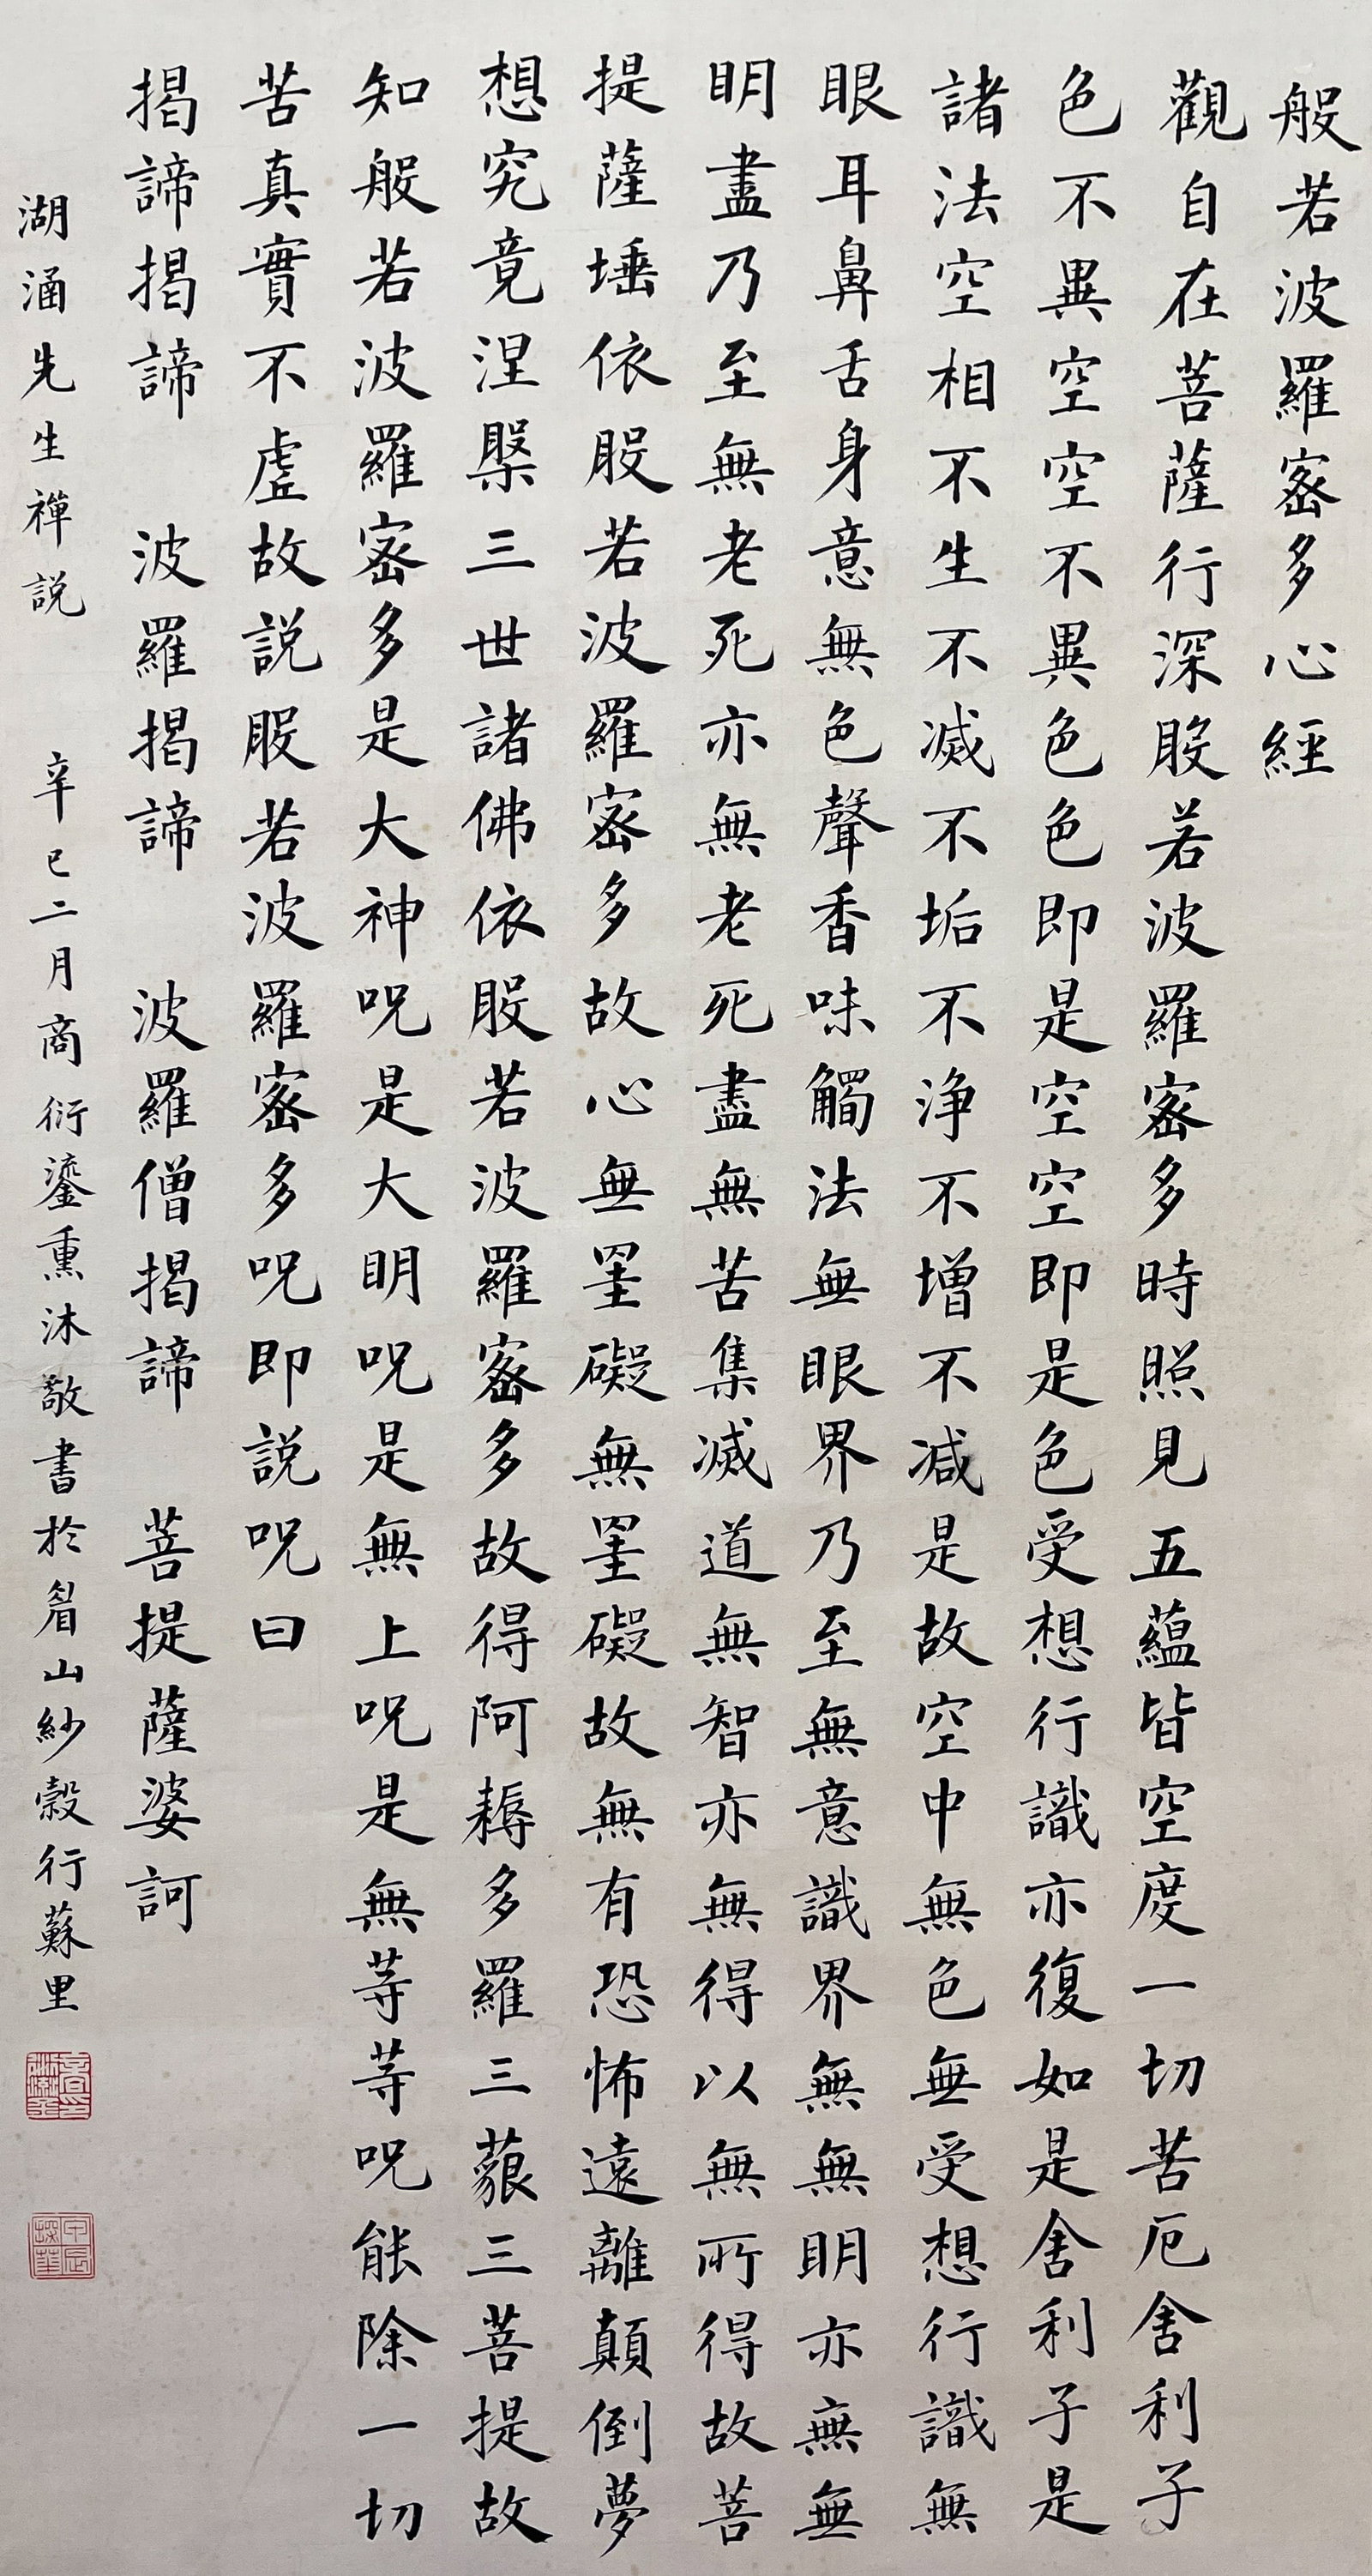 般若波羅密多心經
觀自在菩薩行深般若波羅密多時照見五蘊皆空度一切苦厄舍利子
色不異空空不異色色即是空空即是色受想行識亦復如是舍利子是
諸法空相不生不滅不垢不净不增不减是故空中無色無受想行識無
眼耳鼻舌身意無色聲香味觸法無眼界乃至無意識界無無明亦無無
明盡乃至無老死亦無老死盡無苦集滅道無智亦無得以無所得故菩
提薩埵依般若波羅密多故心無罣礙無罣礙故無有恐怖遠離顛倒夢
想究竟涅槃三世諸佛依般若波羅密多故得阿耨多羅三藐三菩提故
知般若波羅密多是大神呪是大明呪是無上呪是無等等呪能除一切
苦真實不虛故説般若波羅密多呪即説呪曰
揭諦揭諦 波羅揭諦 波羅僧揭諦 菩提薩婆訶
湖涵先生禪説 辛巳二月商衍鎏熏沐敬書於眉山紗縠行蘇里